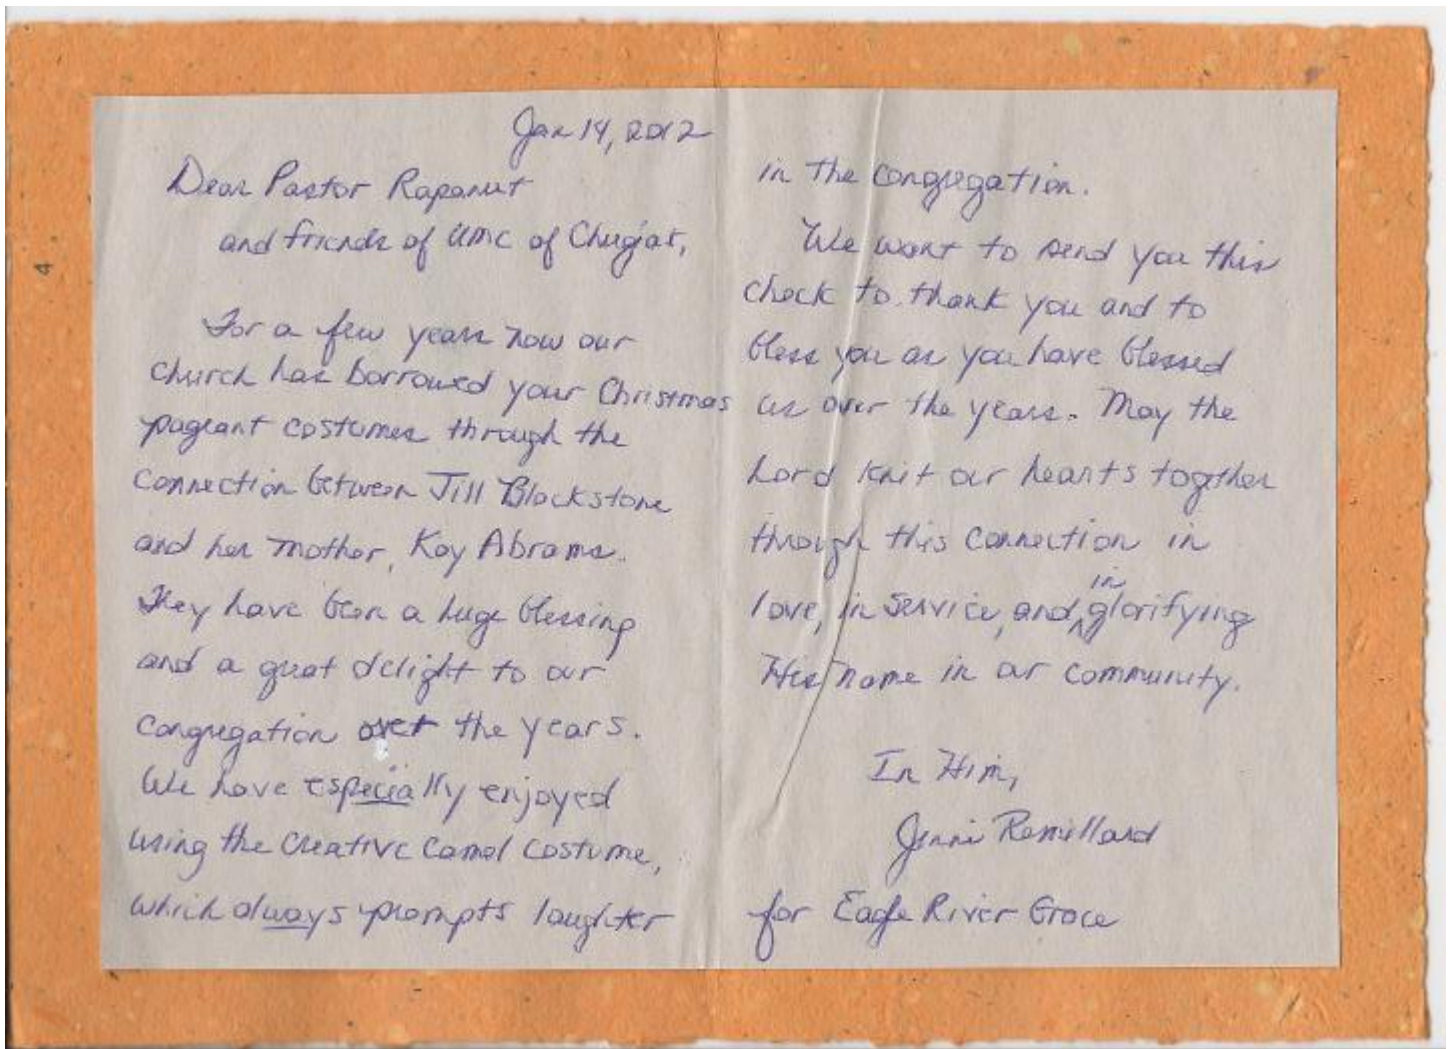 Jan 14, 2012
Dear Pastor Rapanut
and friends of UMC of Chugiak,
For a few years now our
church has borrowed your Christmas
pageant costumes through the
connection between Jill Blackstone
and her mother, Kay Abrams.
They have been a huge blessing
and a great delight to our
congregation over the years.
We have especially enjoyed
using the creative camel costume,
which always prompts laughter
in the congregation.
We want to send you this
check to thank you and to
bless you as you have blessed
us over the years. May the
Lord knit our hearts together
through this connection in
love, in service, and in glorifying
His name in our community.
In Him,
Jenni Remillard
for Eagle River Grace